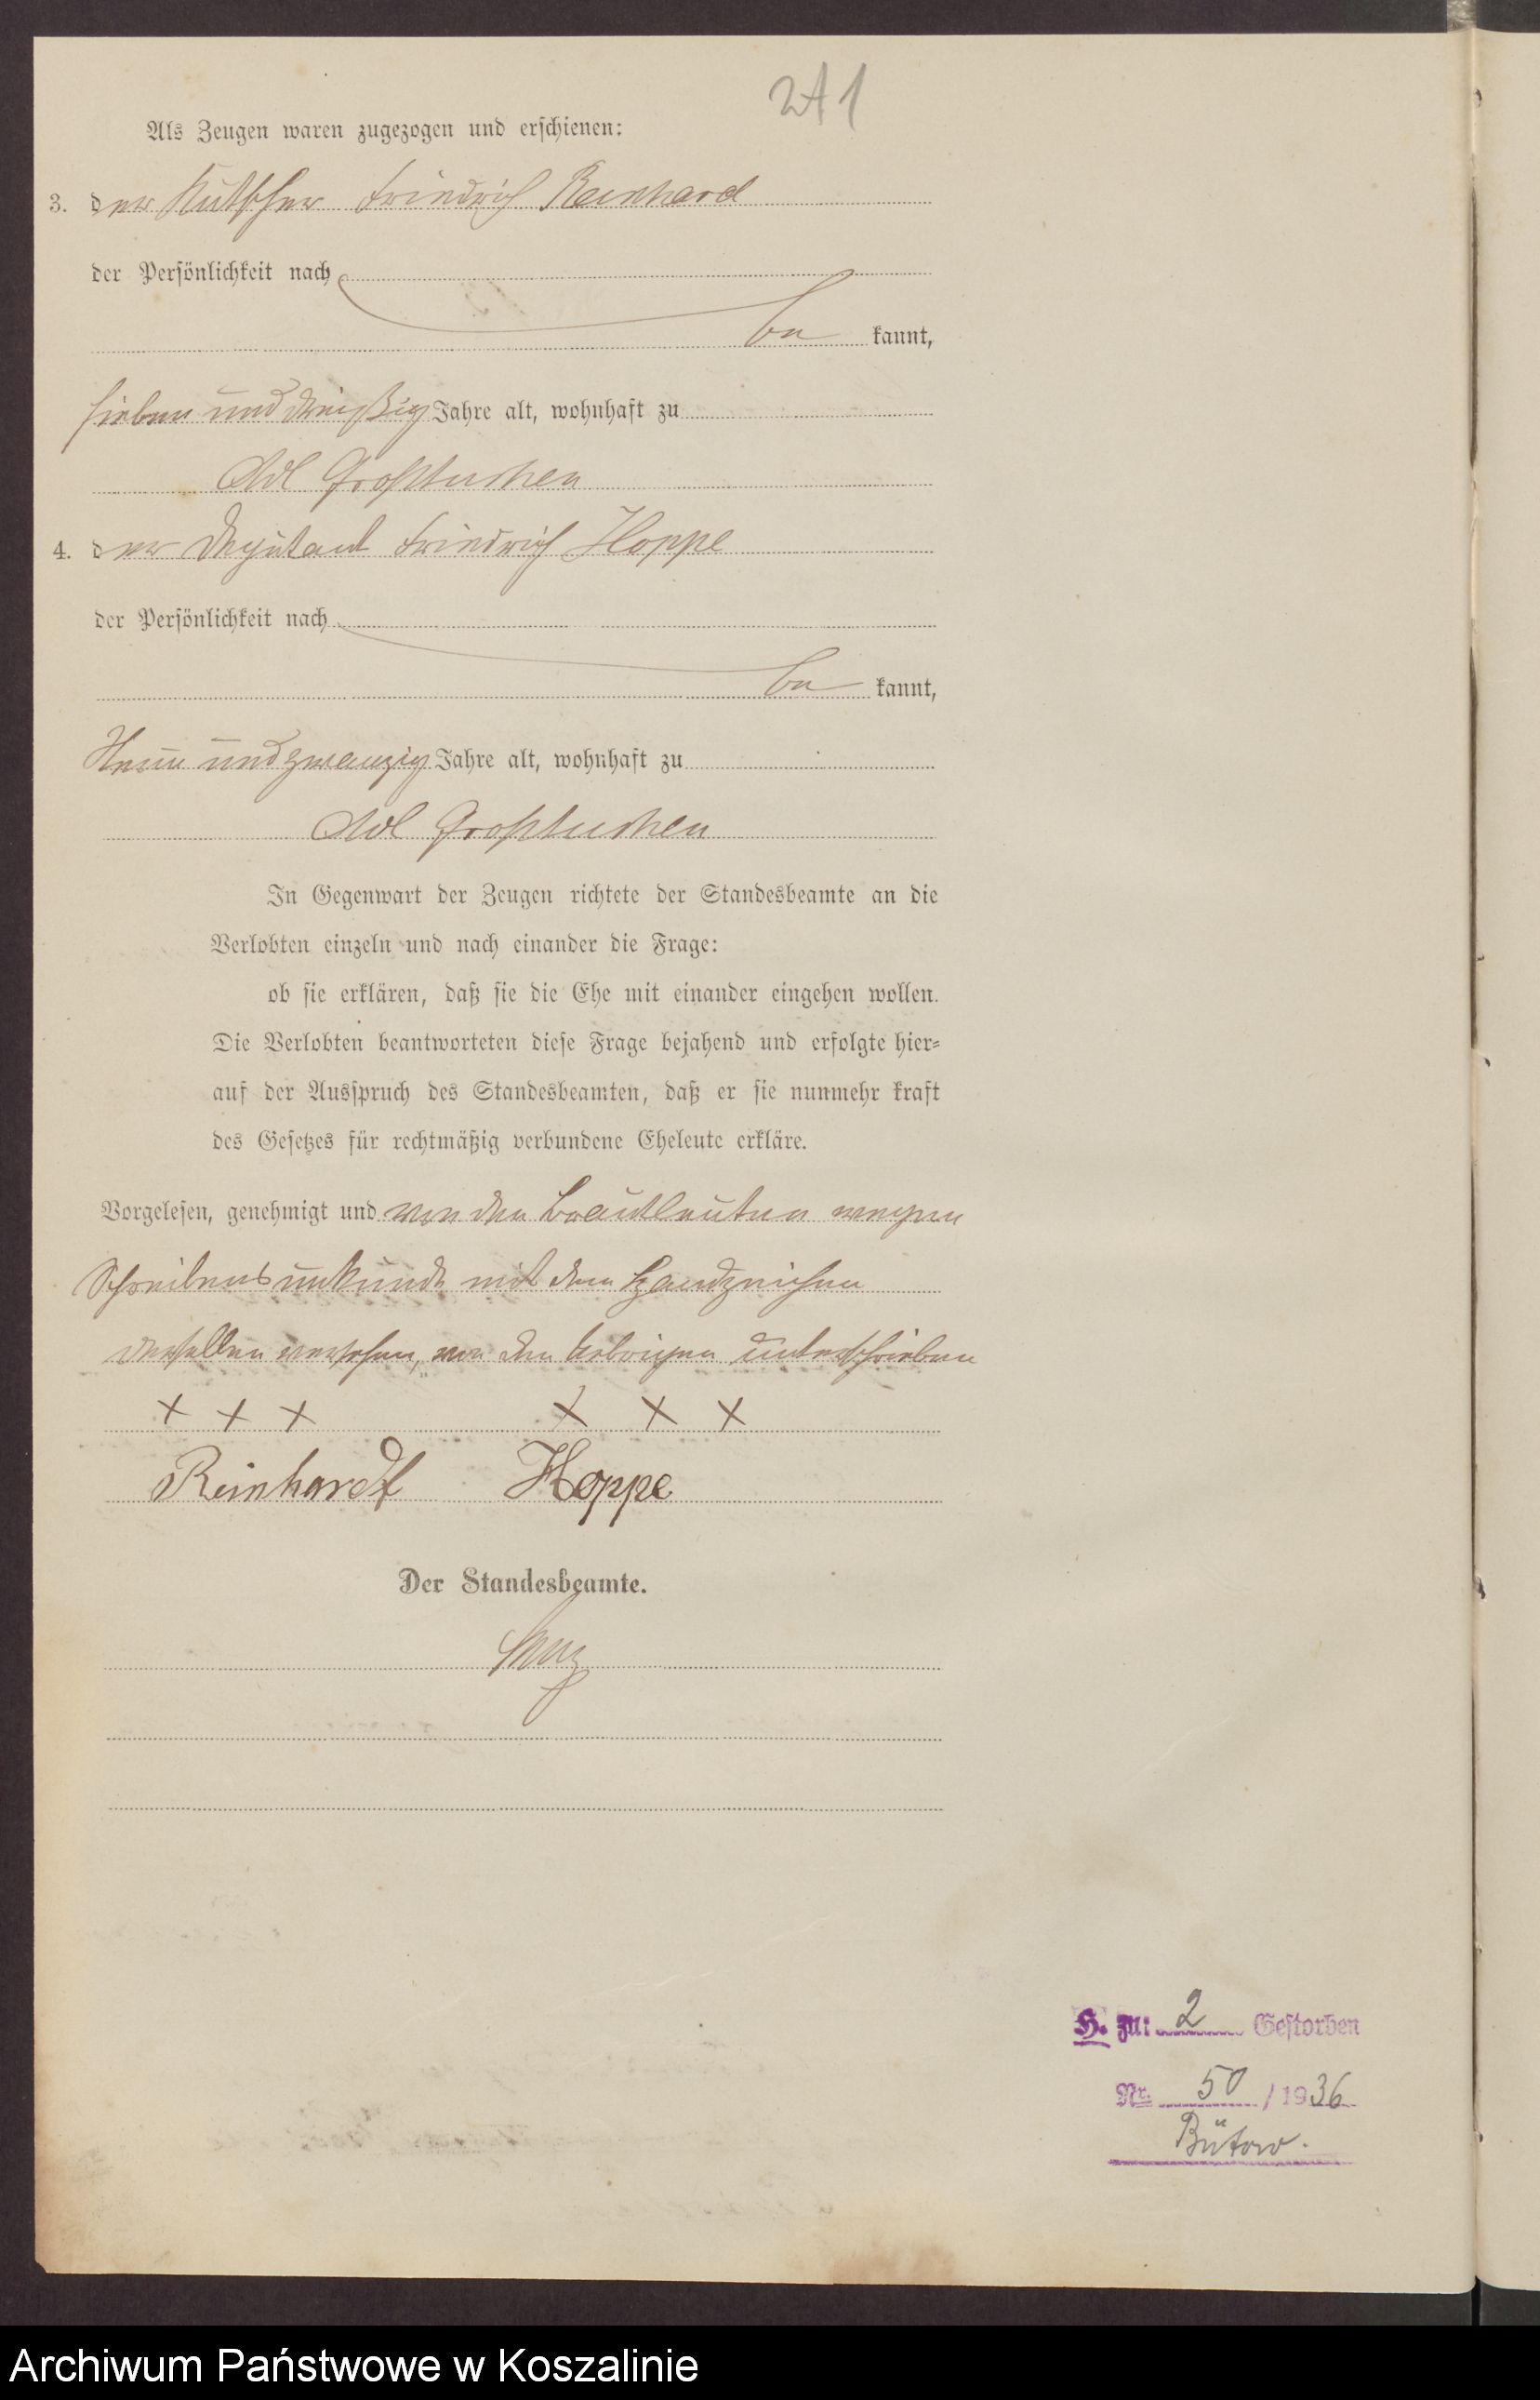 241
Als Zeugen waren zugezogen und erschienen:
3. der Kutscher Friedrich Reinhard
der Persönlichkeit nach
be kannt,
sieben und dreißig Jahre alt, wohnhaft zu
Adl Großtuchen
4. der Deputant Friedrich Hoppe
der Persönlichkeit nach
be kannt,
Neun und zwanzig Jahre alt, wohnhaft zu
Adl Großtuchen
In Gegenwart der Zeugen richtete der Standesbeamte an die
Verlobten einzeln und nach einander die Frage:
ob sie erklären, daß sie die Ehe mit einander eingehen wollen.
Die Verlobten beantworteten diese Frage bejahend und erfolgte hier=
auf der Ausspruch des Standesbeamten, daß er sie nunmehr kraft
des Gesetzes für rechtmäßig verbundene Eheleute erkläre.
Vorgelesen, genehmigt und von den Brautleuten wegen
Schreibensunkunde mit dem Handzeichen
derselben versehen, von den Uebrigen unterschrieben
+ + + + + +
Reinhardt Hoppe
Der Standesbeamte.
H. zu: 2 Gestorben
Nr. 50 / 1936
Bütow.
Archiwum Państwowe w Koszalinie